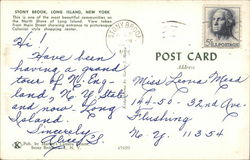 STONY BROOK, LONG ISLAND, NEW YORK
This is one of the most beautiful communities on
the North Shore of Long Island. View taken
from Main Street showing entrance to picturesque
Colonial style shopping center.
STONY BROOK
POST CARD
Address
Hi
Have been
having a grand
tour of N. Eng
land N. Y. State
and now Long
Island.
Sincerely
Miss Leona Mead
144-50-32nd Ave
Flushing
N. Y. 11354
Pub. by
Stony Brook, N. Y.